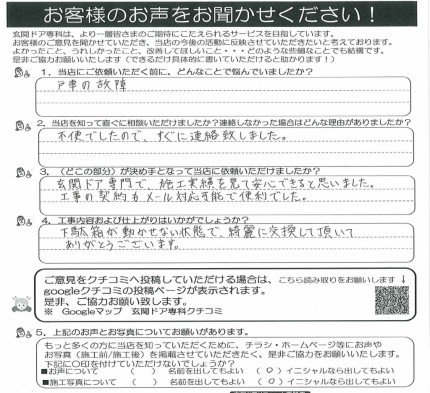 お客様のお声をお聞かせください！
玄関ドア専科は、より一層皆さまのご期待にこたえられるサービスを目指しています。
お客様のご意見を聞かせていただき、当店の今後の活動に反映させていただきたいと考えております。
よかったこと、うれしかったこと、改善してほしいこと・・・どのような些細なことでも結構です。
是非ご協力お願いします（できるだけ具体的に書いていただけると助かります！）
1．当店にご依頼いただく前に、どんなことで悩んでいましたか？
戸車の故障
2．当店を知って直ぐに相談いただけましたか？連絡しなかった場合はどんな理由がありましたか？
不便でしたので、すぐに連絡致しました。
3．（どこの部分）が決め手となって当店に依頼いただけましたか？
玄関ドア専門で、施工実績を見て安心できると思いました。
工事の契約もメール対応可能で便利でした。
4．工事内容および仕上がりはいかがでしょうか？
下駄箱が動かせない状態で、綺麗に交換して頂いて
ありがとうございます。
ご意見をクチコミへ投稿していただける場合は、こちら読み取りをお願いします↓
googleクチコミの投稿ページが表示されます。
是非、ご協力お願い致します。
※ Googleマップ 玄関ドア専科クチコミ
5．上記のお声とお写真についてお願いがあります。
もっと多くの方に当店を知っていただくために、チラシ・ホームページ等にお声や
お写真（施工前/施工後）を掲載させていただきたく、是非ご協力をお願いいたします。
下記に〇印を付けていただけないでしょうか？
■お声について （ ） 名前を出してもよい （〇）イニシャルなら出してもよい
■施工写真について （ ） 名前を出してもよい （〇）イニシャルなら出してもよい